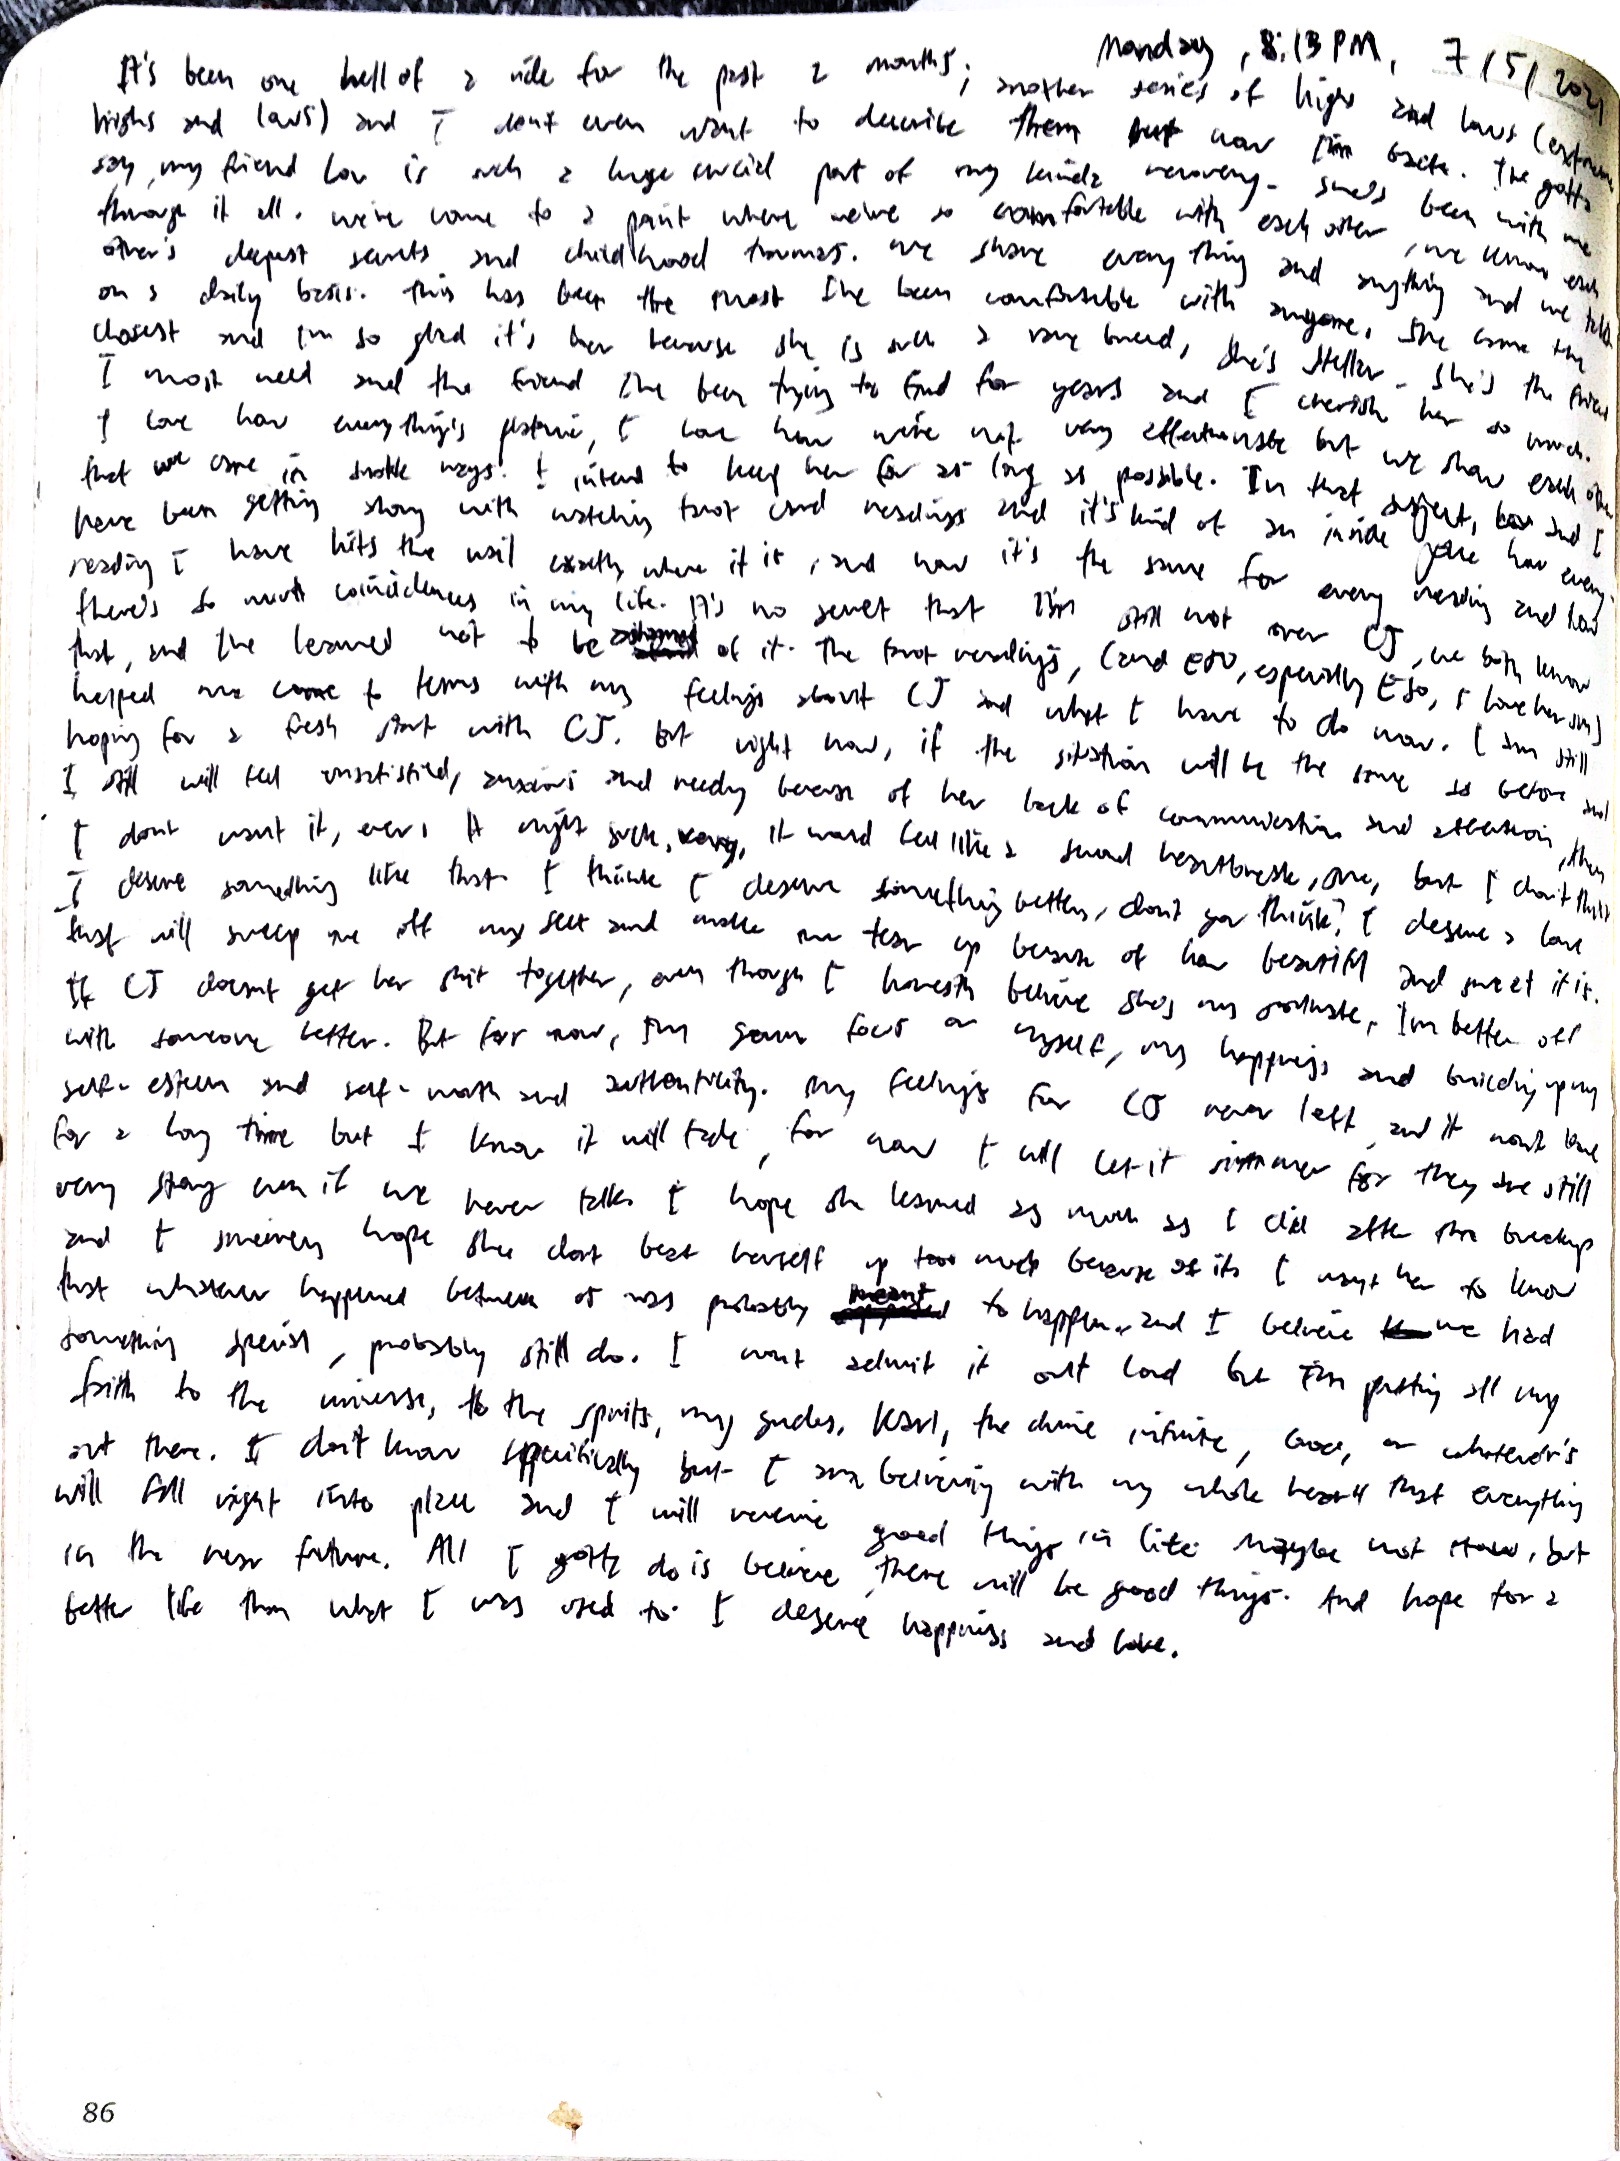 Monday, 8:13 PM, 7/5/2021
It's been one hell of a ride for the past 2 months; another series of highs and lows (extreme
highs and lows) and I dont even want to describe them but now I'm back. I've gotta
say, my friend Lou is such a huge crucial part of my kinda recovery. She's been with me
through it all. we've come to a point where we're so comfortable with each other, we know each
other's deepest secrets and childhood traumas. we share everything and anything and we talk
on a daily basis. This has been the most I've been comfortable with anyone, she came the
closest and I'm so glad it's her because she is such a rare breed, she's stellar. She's the friend
I most need and the friend I've been trying to find for years and I cherish her so much.
I love how everything's platonic, I love how we're not very affectionate but we show each other
that we care in subtle ways. I intend to keep her for as long as possible. In that subject, Lou and I
have been getting strong with watching tarot card readings and it's kind of an inside joke how every
reading I have hits the nail exactly where it it, and now it's the same for every reading and how
there's so much coincidences in my life. It's no secret that I'm still not over CJ, we both know
that, and I've learned not to be ashamed of it. The tarot readings, (and ESO, especially ESO, I love her sm)
helped me come to terms with my feelings about CJ and what I have to do now. I am still
hoping for a fresh start with CJ. But right now, if the situation will be the same as before and
I still will feel unsatisfied, anxious and needy because of her lack of communication and attention, then
I dont want it, ever. It might suck, it would feel like a second heartbreak, sure, but I don't think
I deserve something like that. I think I deserve something better, don't you think? I deserve a love
that will sweep me off my feet and make me tear up because of how beautiful and sweet it is.
If CJ doesnt get her shit together, even though I honestly believe she's my soulmate, I'm better off
with someone better. But for now, I'm gonna focus on myself, my happiness and building up my
self-esteem and self-worth and authenticity. My feelings for CJ never left, and it wont leave
for a long time but I know it will fade, for now I will let it simmer for they are still
very strong even if we never talk. I hope she learned as much as I did after the breakup
and I sincerely hope she dont beat herself up too much because of it. I want her to know
that whatever happened between us was probably meant to happen, and I believe we had
something special, probably still do. I wont admit it out loud but I'm putting all my
faith to the universe, to the spirits, my guides, the divine infinite, God, or whatever's
out there. I don't know specifically but I am believing with my whole heart that everything
will fall right into place and I will receive good things in life. Maybe not now, but
in the near future. All I gotta do is believe there will be good things. And hope for a
better life than what I was used to. I deserve happiness and love.
86